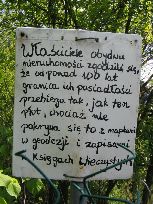 Właściciele obydwu
nieruchomości zgodzili się,
że od ponad 100 lat
granica ich posiadłości
przebiega tak, jak ten
płot, chociaż nie
pokrywa się to z mapami
w geodezji i zapisami w
Księgach Wieczystych